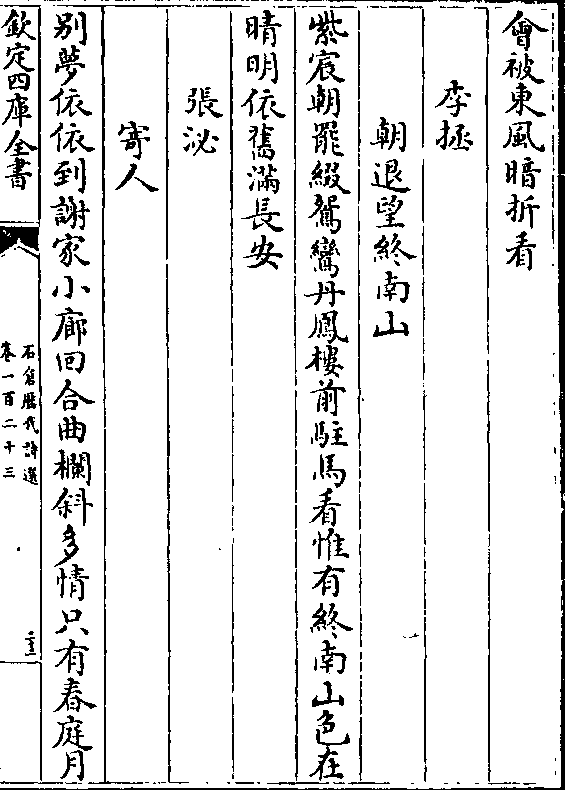 會被東風暗折看
李拯
朝退望終南山
紫宸朝罷綴鴛鸞丹鳳樓前駐馬看惟有終南山色在
晴明依舊滿長安
張泌
寄人
別夢依依到謝家小廊回合曲欄斜多情只有春庭月
欽定四庫全書
石倉歴代詩選
卷一百二十三